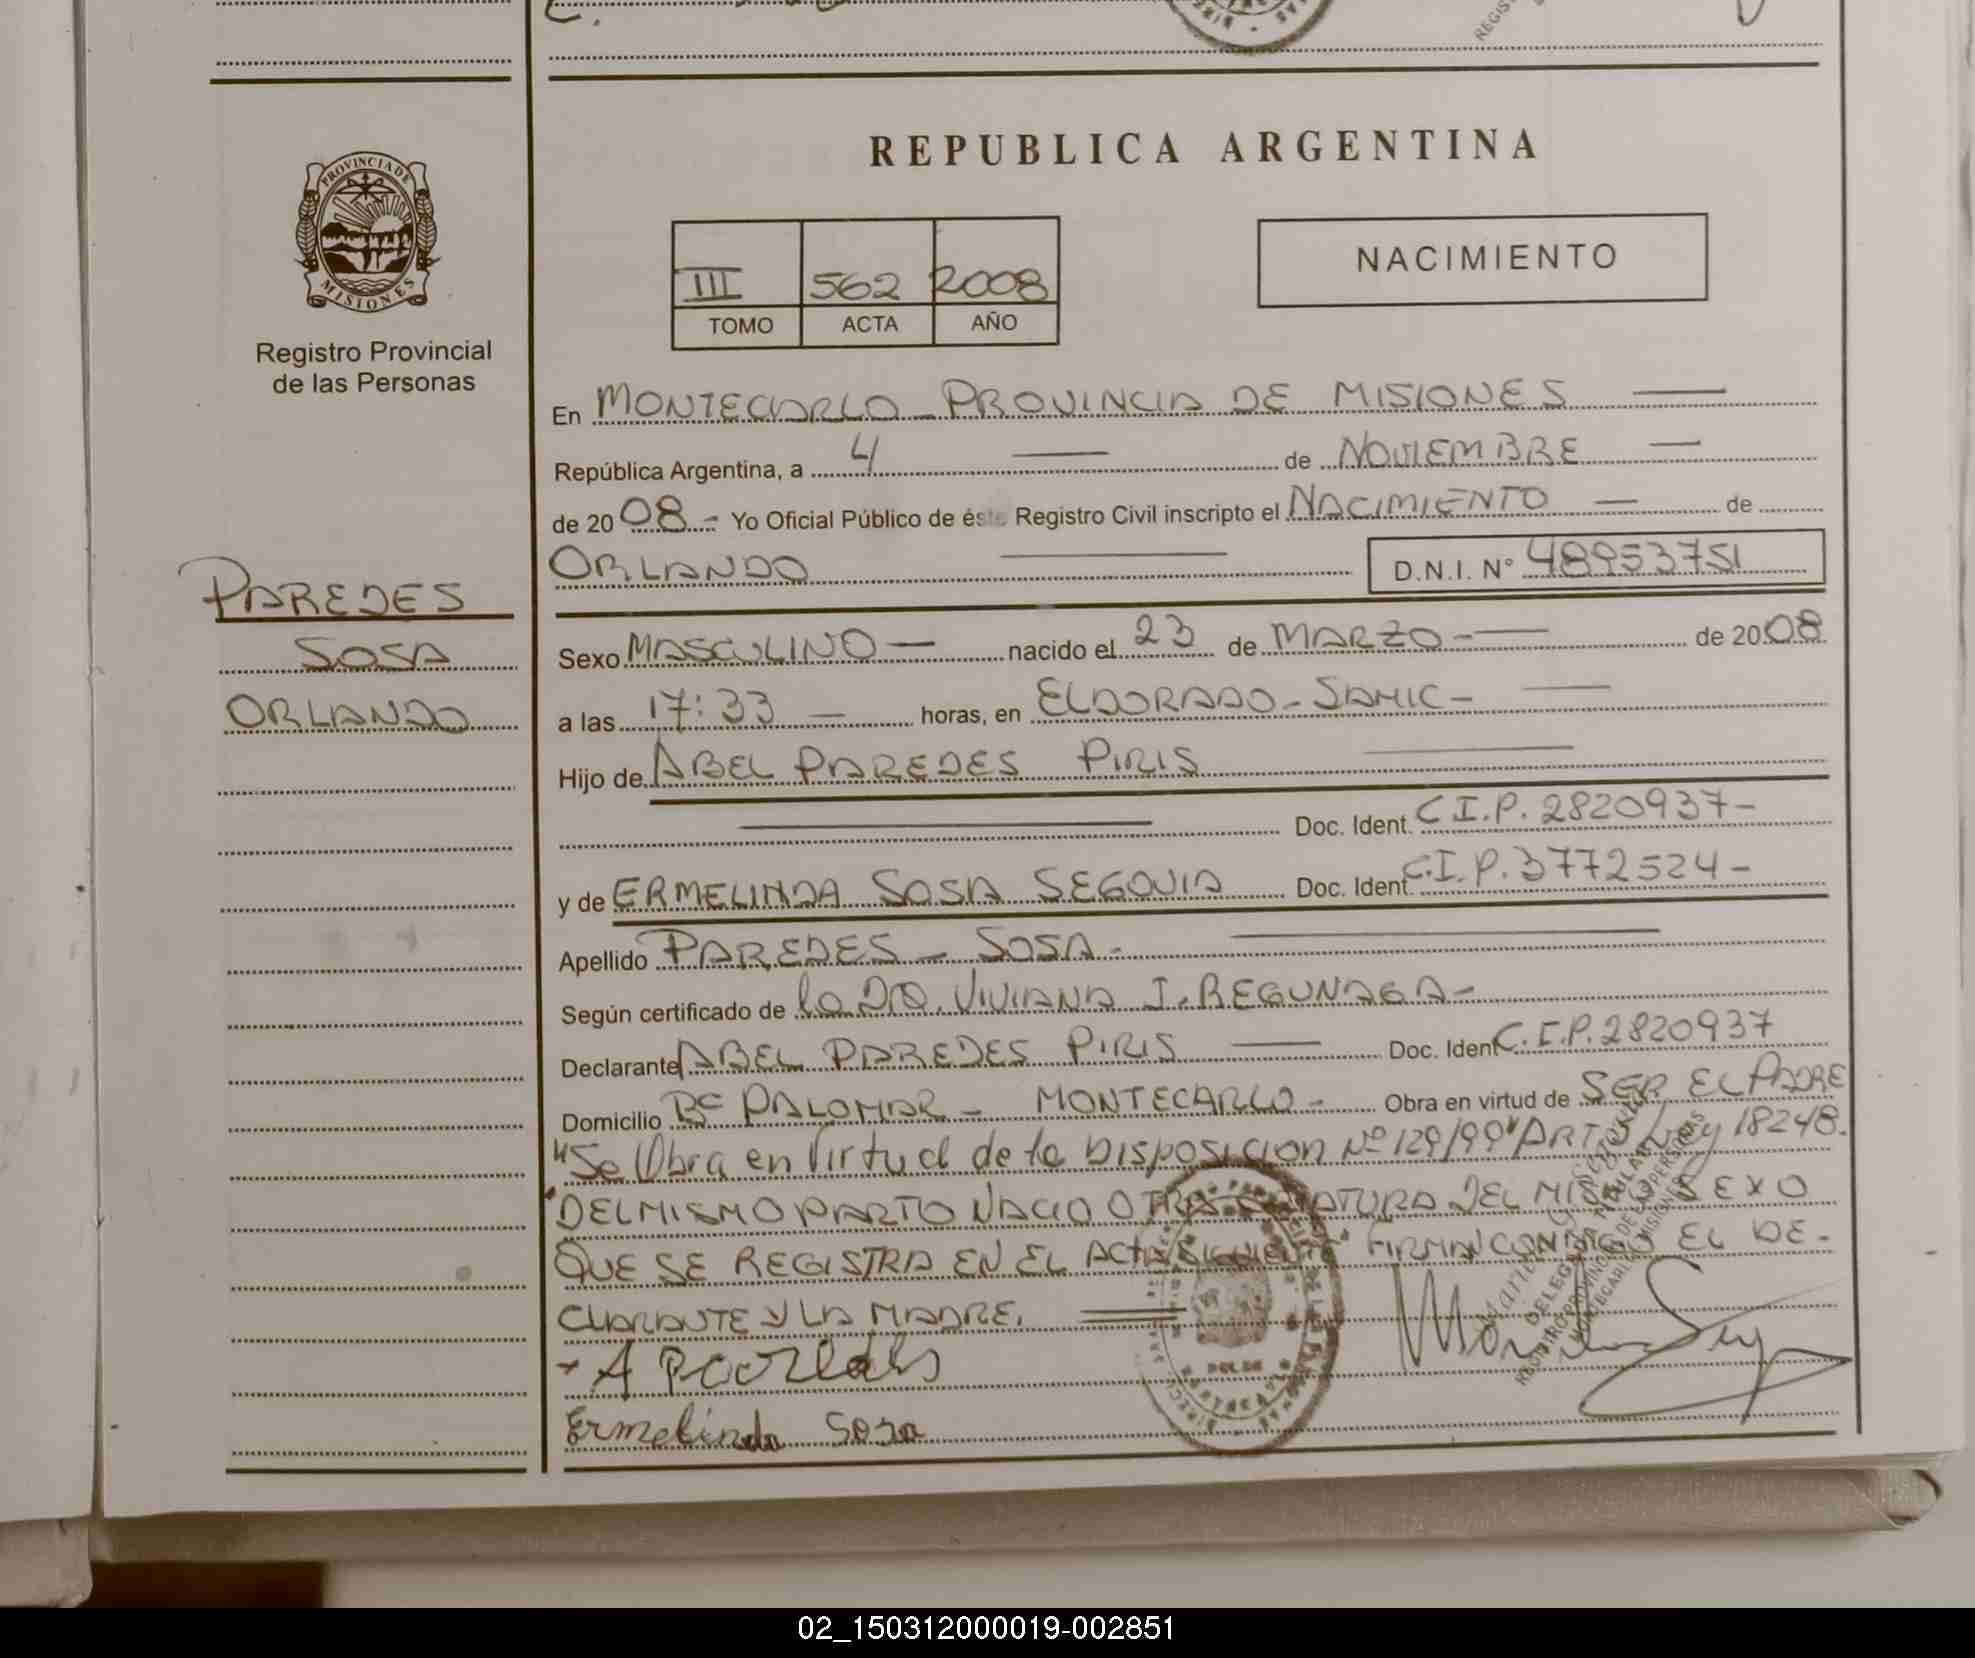 REPUBLICA ARGENTINA
PROVINCIA DE
MISIONES
Registro Provincial
de las Personas
III 562 2008
TOMO ACTA AÑO
NACIMIENTO
En MONTECARLO - PROVINCIA DE MISIONES
República Argentina, a 4 de NOVIEMBRE
de 2008 - Yo Oficial Público de éste Registro Civil inscripto el NACIMIENTO de
ORLANDO D.N.I. N° 48953751
PAREDES
SOSA
ORLANDO
Sexo MASCULINO nacido el 23 de MARZO - de 2008
a las 17:33 horas, en ELDORADO - SAMIC -
Hijo de ABEL PAREDES PIRIS
Doc. Ident. C.I.P. 2820937 -
y de ERMELINDA SOSA SEGOVIA Doc. Ident. C.I.P. 3772524 -
Apellido PAREDES - SOSA -
Según certificado de la Dra. VIVIANA I. REGUNAGA -
Declarante ABEL PAREDES PIRIS Doc. Ident C.I.P. 2820937
Domicilio Bº PALOMAR - MONTECARLO - Obra en virtud de SER EL PADRE
"Se Obra en Virtud de la Disposicion Nº 129/99" ART Ley 18248.
"DEL MISMO PARTO NACIO OTRA CRIATURA DEL MISMO SEXO
QUE SE REGISTRA EN EL ACTA SIGUIENTE" FIRMAN CONMIGO EL DE-
CLARANTE Y LA MADRE.
Ermelinda Sosa
02_150312000019-002851